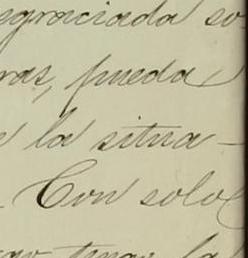 egraciada so-
ras, pueda
la situa-
Con solo